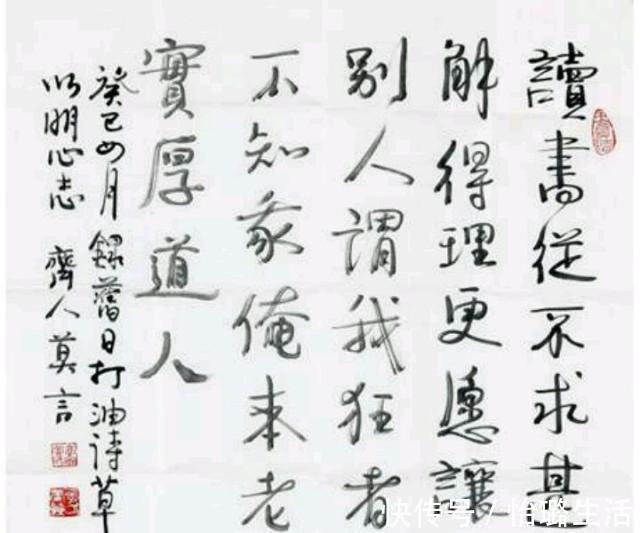 讀書從不求甚
解得理更愿讓
别人謂我狂者
不知我俺本老
實厚道人
癸巳四月錄舊日打油詩草
以明心志 齊人莫言
快传号/怡璐生活